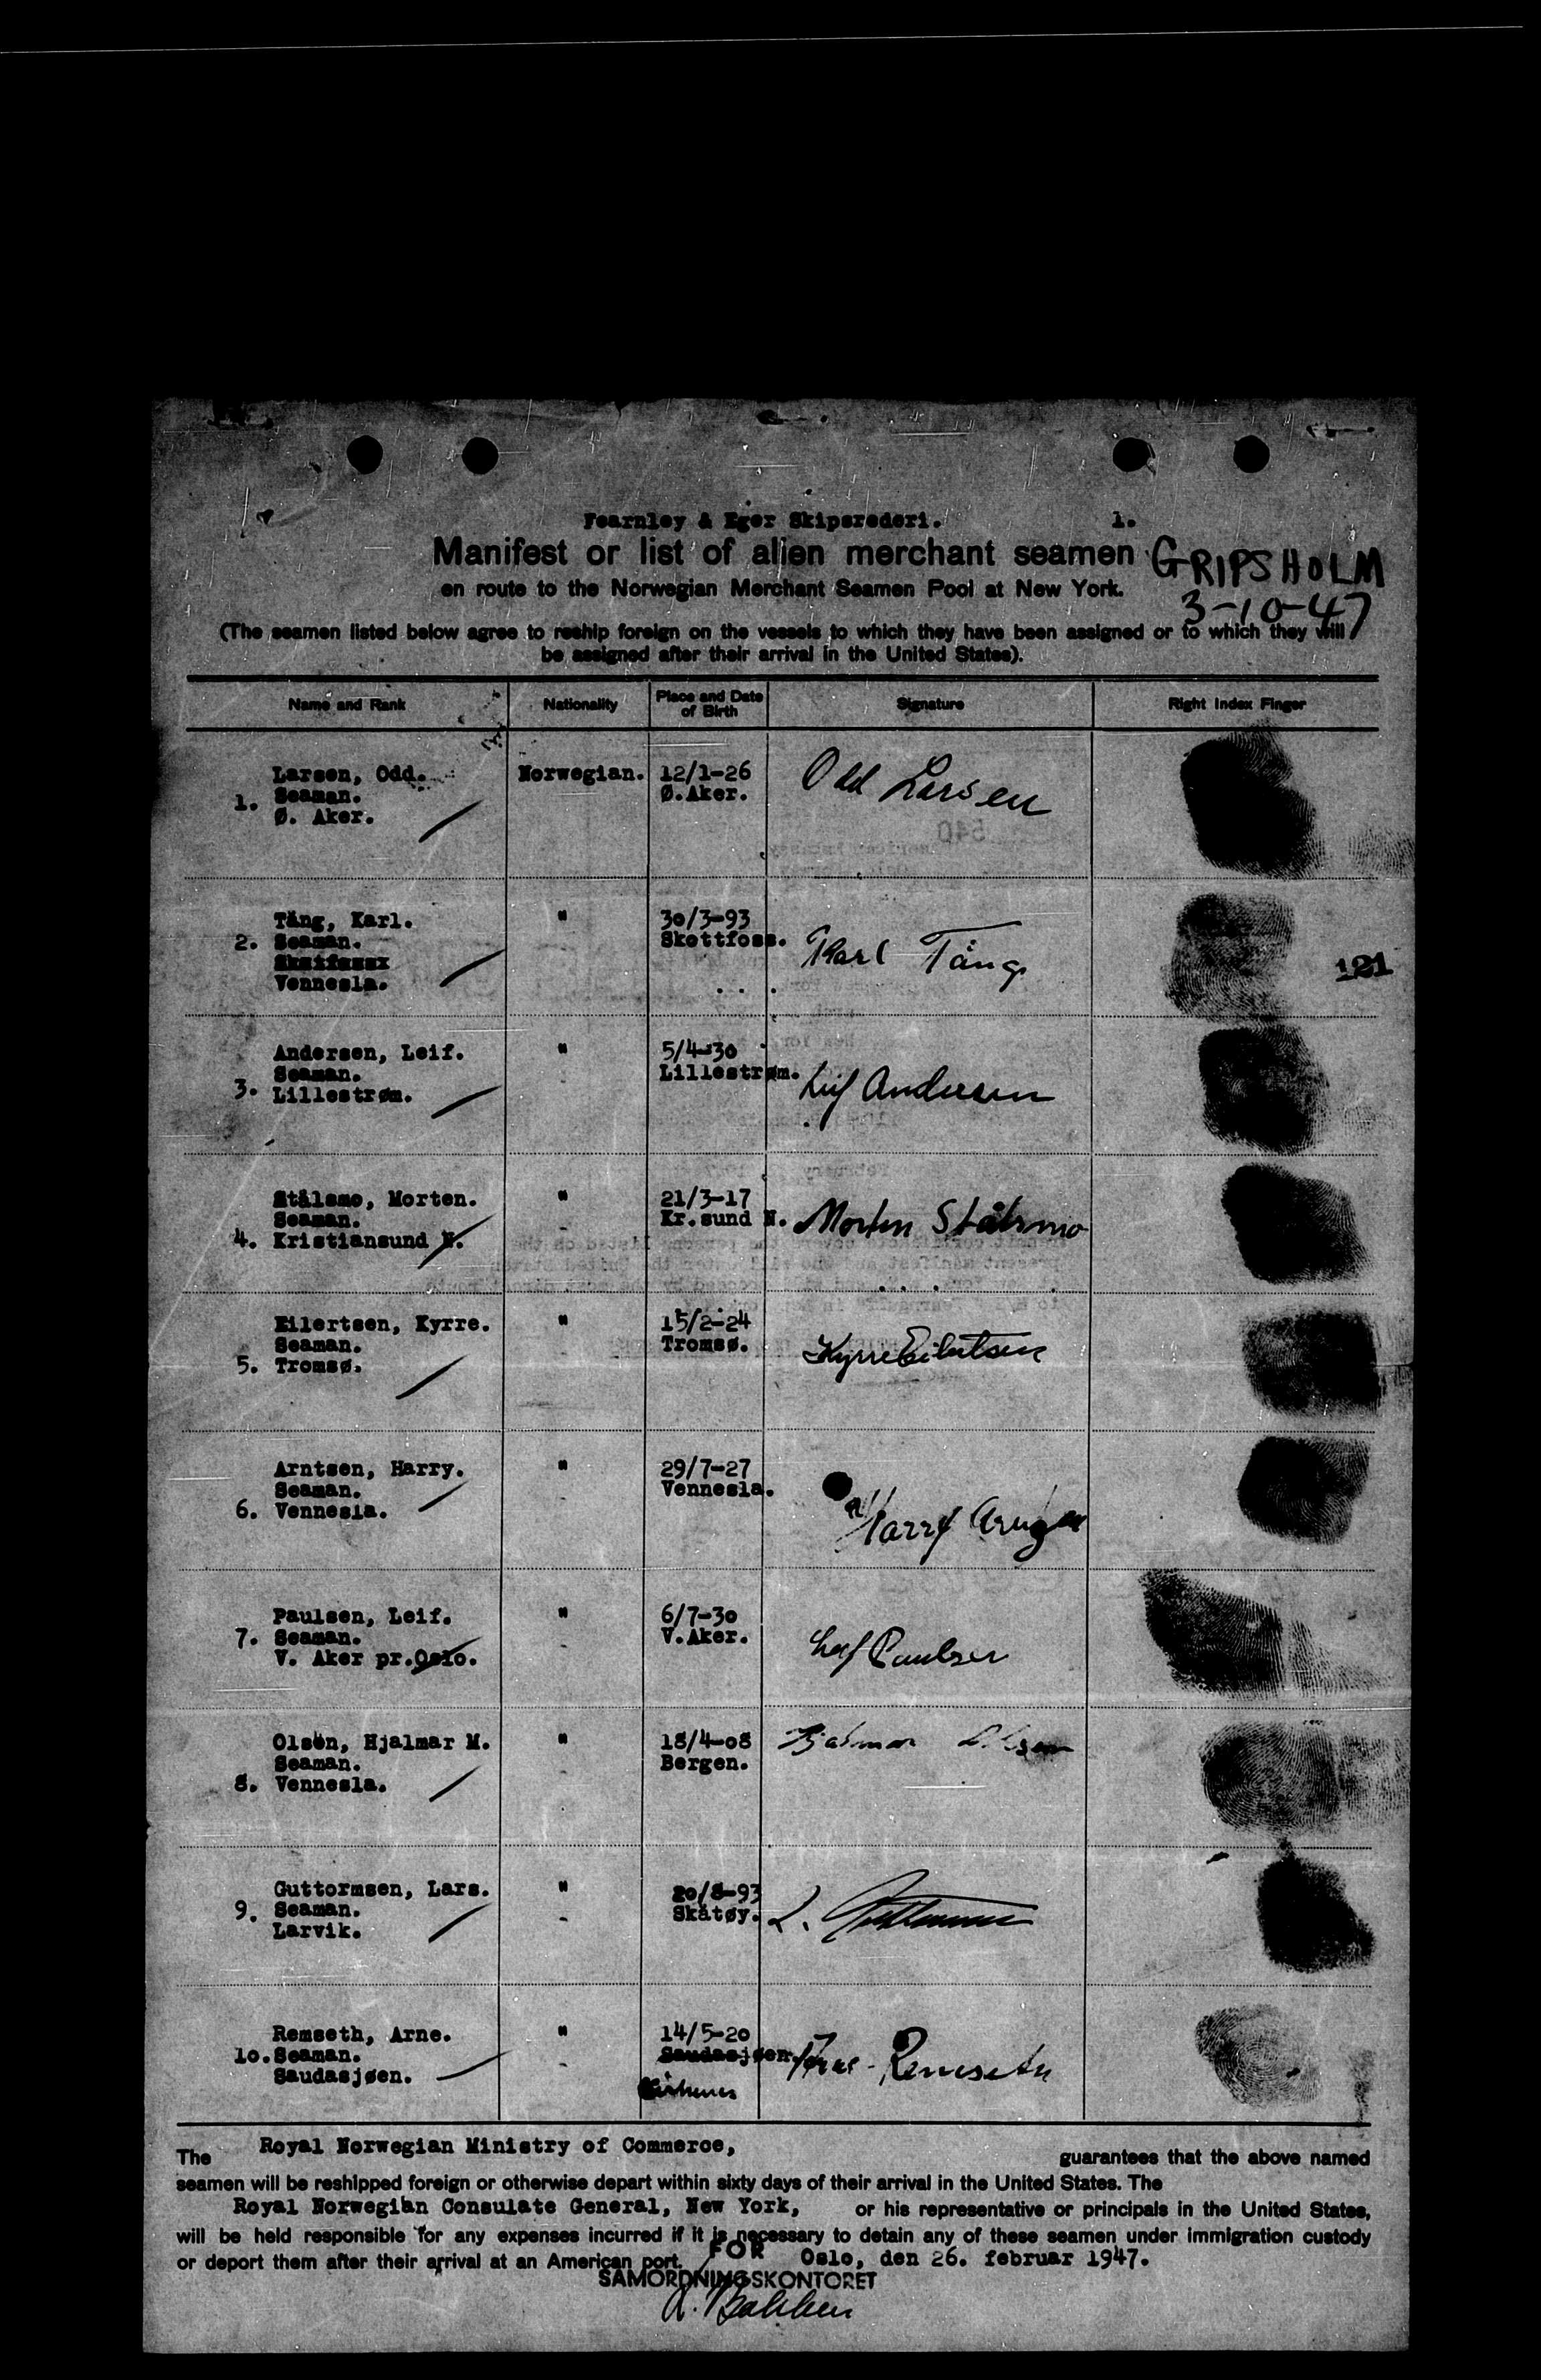 Fearnley & Eger Skipsrederi. 1.
Manifest or list of alien merchant seamen GRIPSHOLM
en route to the Norwegian Merchant Seamen Pool at New York. 3-10-47
(The seamen listed below agree to reship foreign on the vessels to which they have been assigned or to which they will
be assigned after their arrival in the United States).
Name and Rank Nationality Place and Date of Birth Signature Right Index Finger
Larsen, Odd. Norwegian. 12/1-26 Odd Larsen
1. Seaman. Ø.Aker.
Ø. Aker.
540
Tång, Karl. " 30/3-93 Karl Tång
2. Seaman. Skottfoss. 121
Vennesla.
Andersen, Leif. " 5/4-30 Leif Andersen
Seaman. Lillestrøm.
3. Lillestrøm.
Stålsmo, Morten. " 21/3-17 Morten Stålsmo
Seaman. Kr.sund N.
4. Kristiansund N.
Eilertsen, Kyrre. " 15/2-24 Kyrre Eilertsen
Seaman. Tromsø.
5. Tromsø.
Arntsen, Harry. " 29/7-27 Harry
Seaman. Vennesla.
6. Vennesla.
Paulsen, Leif. " 6/7-30 Leif Paulsen
7. Seaman. V.Aker.
V. Aker pr.Oslo.
Olsen, Hjalmar M. " 18/4-08 Hjalmar Olsen
Seaman. Bergen.
8. Vennesla.
Guttormsen, Lars. " 20/8-93 L. Guttormsen
9. Seaman. Skåtøy.
Larvik.
Remseth, Arne. " 14/5-20 Arne Remseth
10. Seaman. Saudasjøen.
Saudasjøen. Kirkenes
The Royal Norwegian Ministry of Commerce, guarantees that the above named
seamen will be reshipped foreign or otherwise depart within sixty days of their arrival in the United States. The
Royal Norwegian Consulate General, New York, or his representative or principals in the United States,
will be held responsible for any expenses incurred if it is necessary to detain any of these seamen under immigration custody
or deport them after their arrival at an American port. FOR Oslo, den 26. februar 1947.
SAMORDNINGSKONTORET
A. Bakken